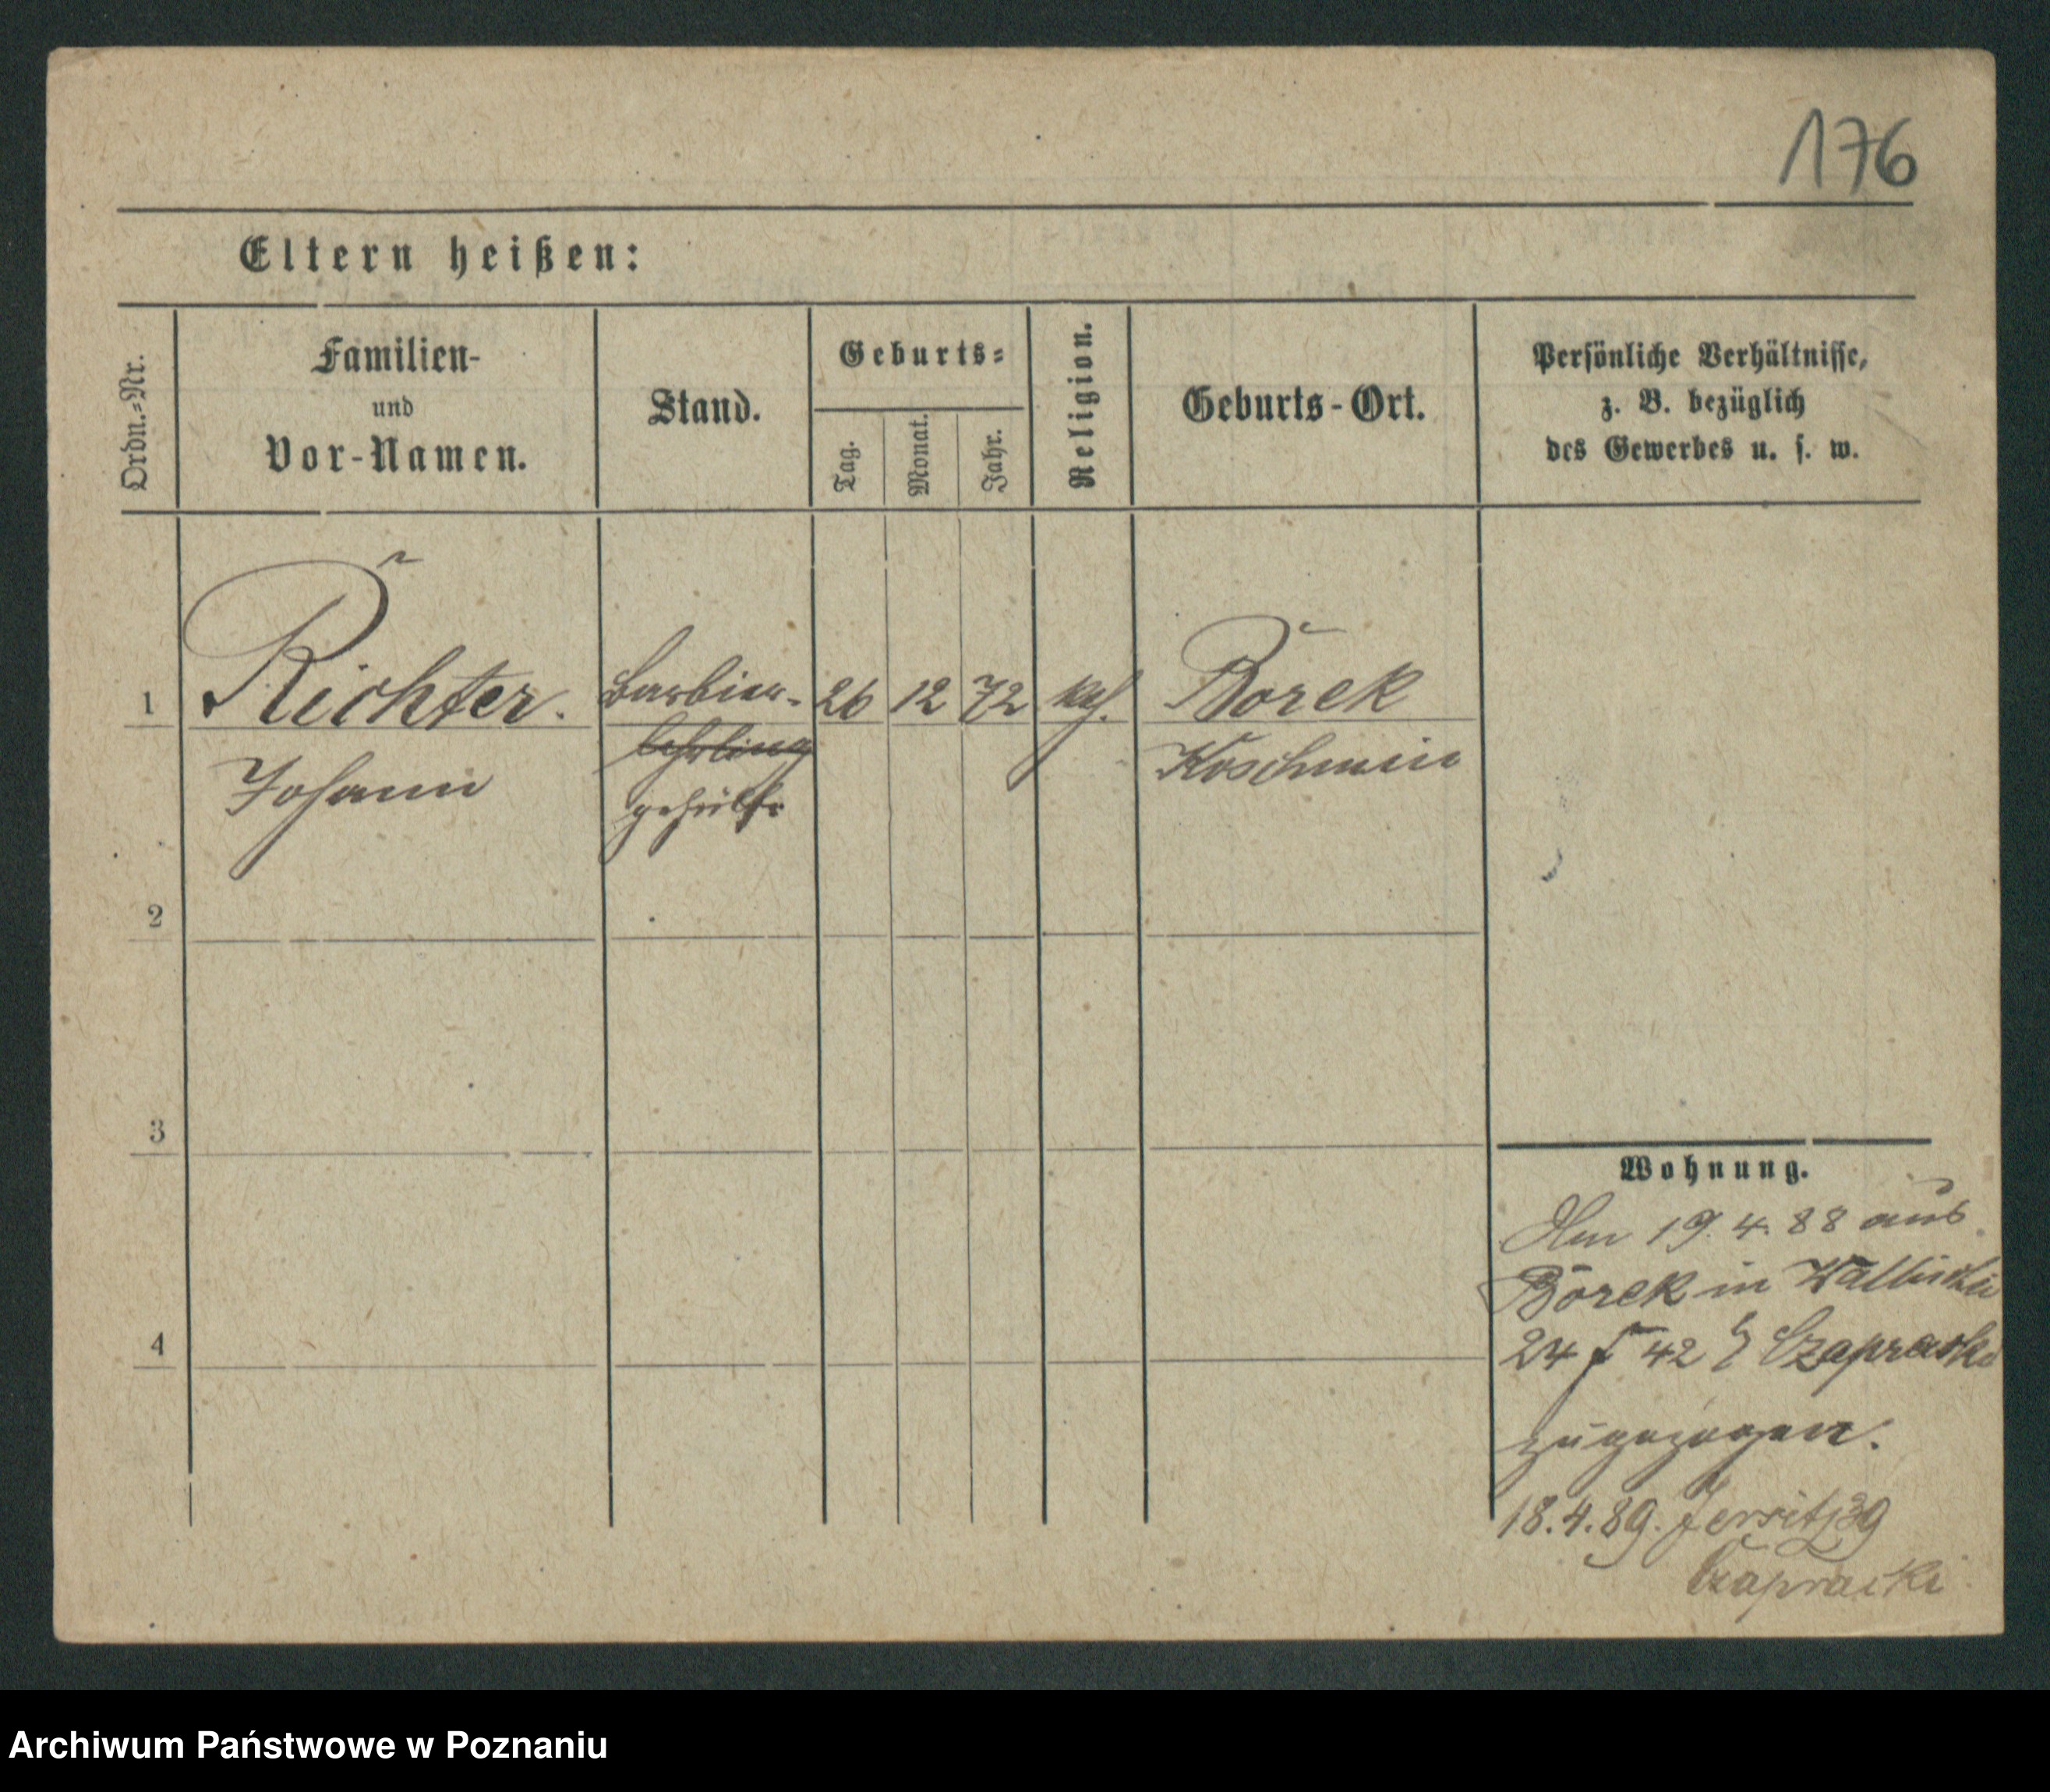 176
Eltern heißen:
Ordn.-Nr.
Familien-
und
Vor-Namen.
Stand.
Geburts-
Tag.
Monat.
Jahr.
Religion.
Geburts-Ort.
Persönliche Verhältnisse,
z. B. bezüglich
des Gewerbes u. s. w.
1
Richter.
Barbier-
26
12
72
kath.
Borek
lehrling
Koschmin
Johann
gehülfe
2
3
Wohnung.
Am 19.4.88 aus
Borek in Wallischei
4
24 f 42 Czapracki
zugezogen.
18.4.89. Jersitz 39
Czapracki
Archiwum Państwowe w Poznaniu